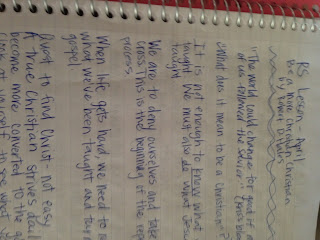 RS Lesson - April
Be a More Christian Christian
by
"The world could change for good if
of us followed the Savior"
What does it mean to be a Christian?
It is not enough to know what
taught. We must also do what Jesus
taught
We are to deny ourselves and take
cross. This is the beginning of the rep
process.
When life gets hard we need to
what we've been taught and
gospel
Quest to find Christ not easy
A true Christian strives dail
become more converted to the g